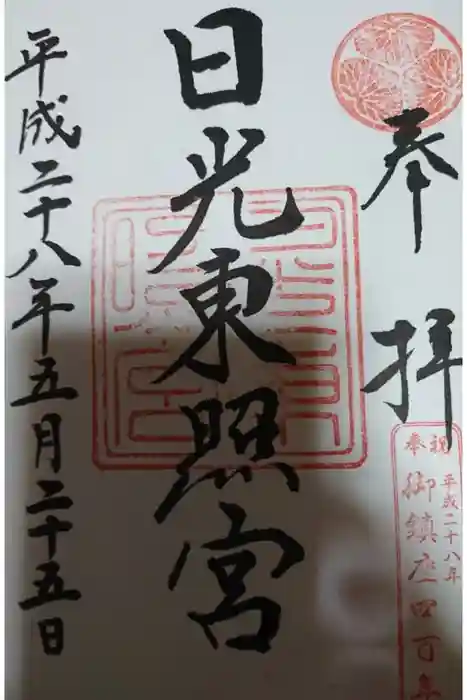 奉拝
奉祝
平成二十八年
御鎮座四百年
日光東照宮
平成二十八年五月二十五日